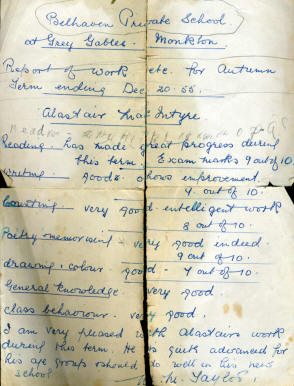 Belhaven Private School
at Grey Gables. Monkton.
Report of Work etc. for Autumn
Term ending Dec 20. 55.
Alastair MacIntyre.
Reading. has made great progress during
this term. Exam marks 9 out of 10.
Writing. good. shows improvement.
9 out of 10.
Counting. very good. intelligent work
8 out of 10.
Poetry memorising very good indeed.
9 out of 10.
drawing. colour. good. 7 out of 10.
General Knowledge. very good.
class behaviour. very good.
I am very pleased with Alastairs work
during this term. He is quite advanced for
his age group & should do well in his new
school.
M. Taylor.